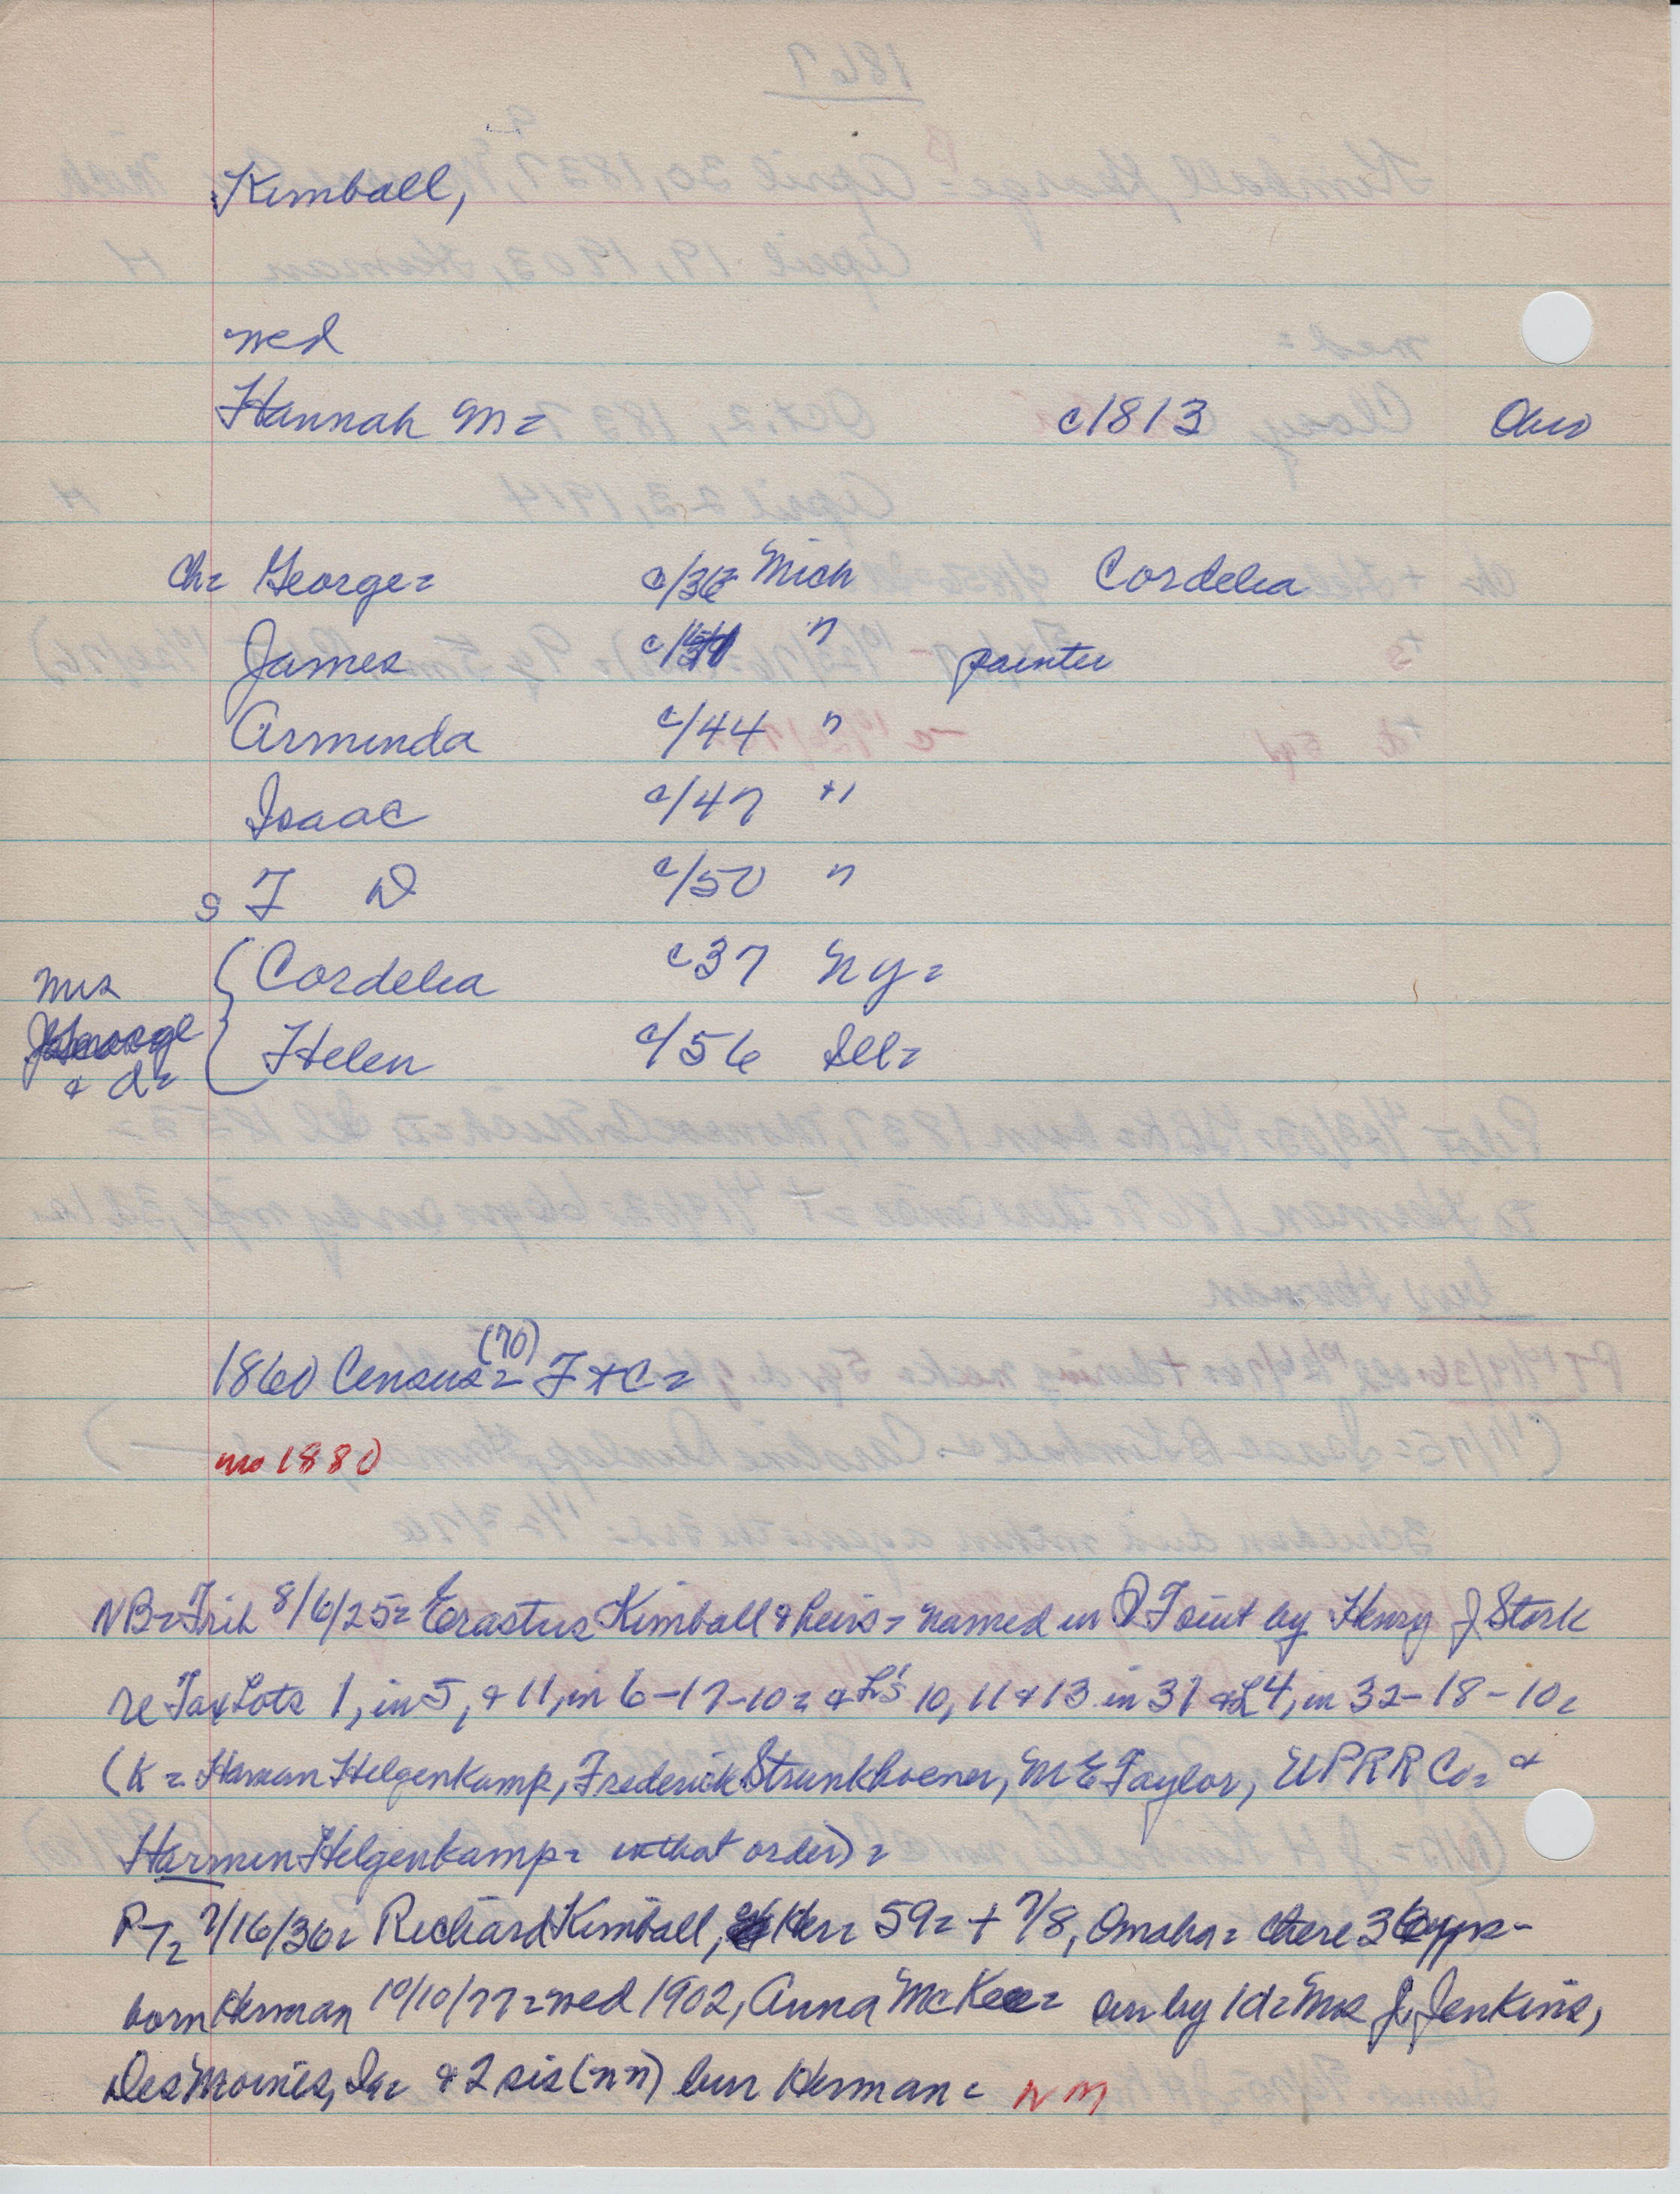 Kimball,
med
Hannah M= c1813 Ohio
Ch= George= c/36= Mich Cordelia
James c/ " painter
Arminda c/44 "
Isaac c/47 "
s F D c/50 "
Cordelia c37 NY=
Mrs George & d=
Helen c/56 Ill=
1860 Census (70) = F & C =
no 1880
NB= Trib 8/6/25= Erastus Kimball & heirs = named in Q T suit by Henry J Stork
re Tax Lots 1, in 5, & 11, in 6-17-10= & L's 10, 11 & 13 in 31 & L 4, in 32-18-10=
(K = Herman Helgenkamp, Frederick Strunkhoener, M E Taylor, UPRR Co= &
Harmen Helgenkamp= in that order) =
PT= 7/16/36= Richard Kimball, Her= 59= + 7/8, Omaha= there 36 yrs-
born Herman 10/10/77= med 1902, Anna McKee= sur by 1 d= Mrs J. Jenkins,
Des Moines, Ia= & 2 sis (nn) bur Herman= NM